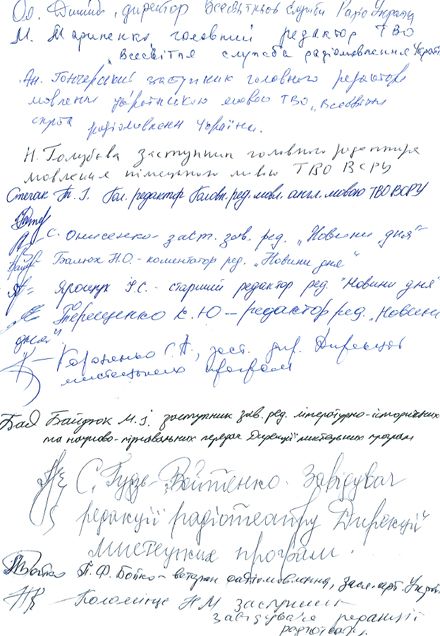 Ол. Дикий, директор Всесвітньої Служби Радіо Україна
М. Мариненко головний редактор ТВО
„Всесвітня служба радіомовлення Україн
Ан. Гончерський заступник головного редактора
мовлення українською мовою ТВО „Всесвітня
служба радіомовлення Україна.
Н. Голубєва заступник головного редактора
мовлення німецькою мовою ТВО ВСРУ
Стегак Т. І. Гол. редактор Голов. ред. мовл. англ. мовою ТВО ВСРУ
С. Онисенко - заст. зав. ред. „Новини дня"
Балюк Н.О. - коментатор ред. „Новини дня"
Ярощук Н.С. - старший редактор ред "Новини дня
Терещенко К. Ю - редактор ред. „Новини
дня".
Короненко С. А., заст. дир. Дирекції
мистецьких програм
Байдюк М. І. заступник зав. ред. літературно-історичних
та науково-пізнавальних передач Дирекції мистецьких програм
С. Гудзь-Войтенко. Завідувач
редакції радіотеатру Дирекції
мистецьких програм.
П. Ф. Бойко - ветеран радіомовлення, засл. арт. Україн
Коломієць Н М заступник
завідувача редакції
радіотеат.